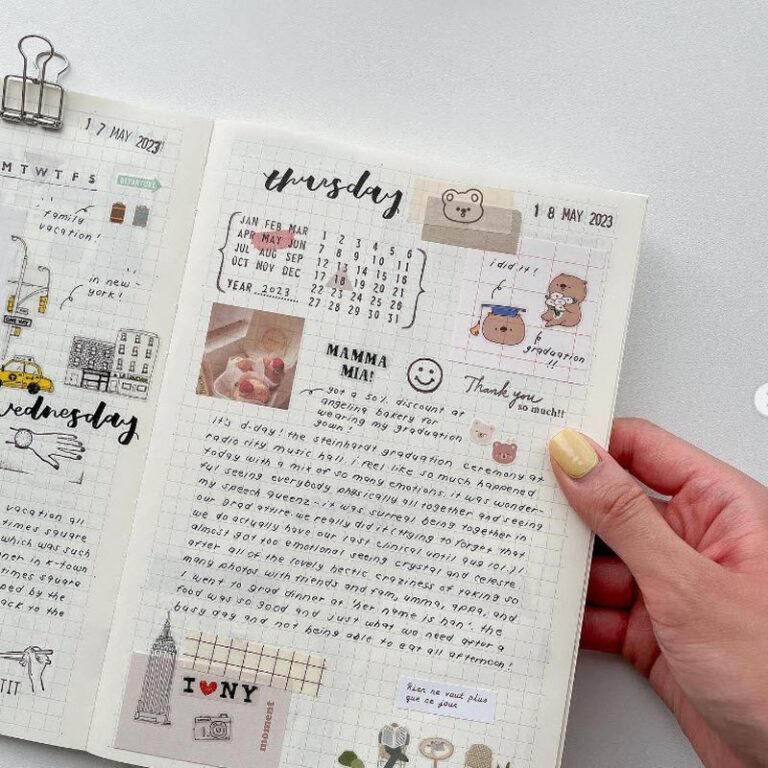 17 MAY 2023
M T W T F S
DEPARTURE
family
vacation!
in new-
york!
ONE WAY
wednesday
vacation all
times square
which was such
ner in k-town
times square
ped by the
ack to the
TIT
thursday
18 MAY 2023
JAN FEB MAR
APR MAY JUN
JUL AUG SEP
OCT NOV DEC
YEAR 2023
1 2 3 4 5 6
7 8 9 10 11
12 13 14 15 16
17 18 19 20 21
22 23 24 25 26
27 28 29 30 31
i did it!
graduation
!!
MAMMA
MIA!
got a 50% discount at
angelina bakery for
wearing my graduation
gown!
Thank you
so much!!
it's d-day! the steinhardt graduation ceremony at
radio city music hall. i feel like so much happened
today with a mix of so many emotions. it was wonder-
ful seeing everybody physically all together and seeing
my speech queenz - it was surreal being together in
our grad attire. we really did it (trying to forget that
we do actually have our last clinical until aug 10L.)!
almost got too emotional seeing crystal and celeste
after all of the lovely hectic craziness of taking so
many photos with friends and fam, umma, appa, and
i went to grad dinner at 'her name is han'. the
food was so good and just what we need after a
busy day and not being able to eat all afternoon!
I NY
moment
Rien ne vaut plus
que ce jour